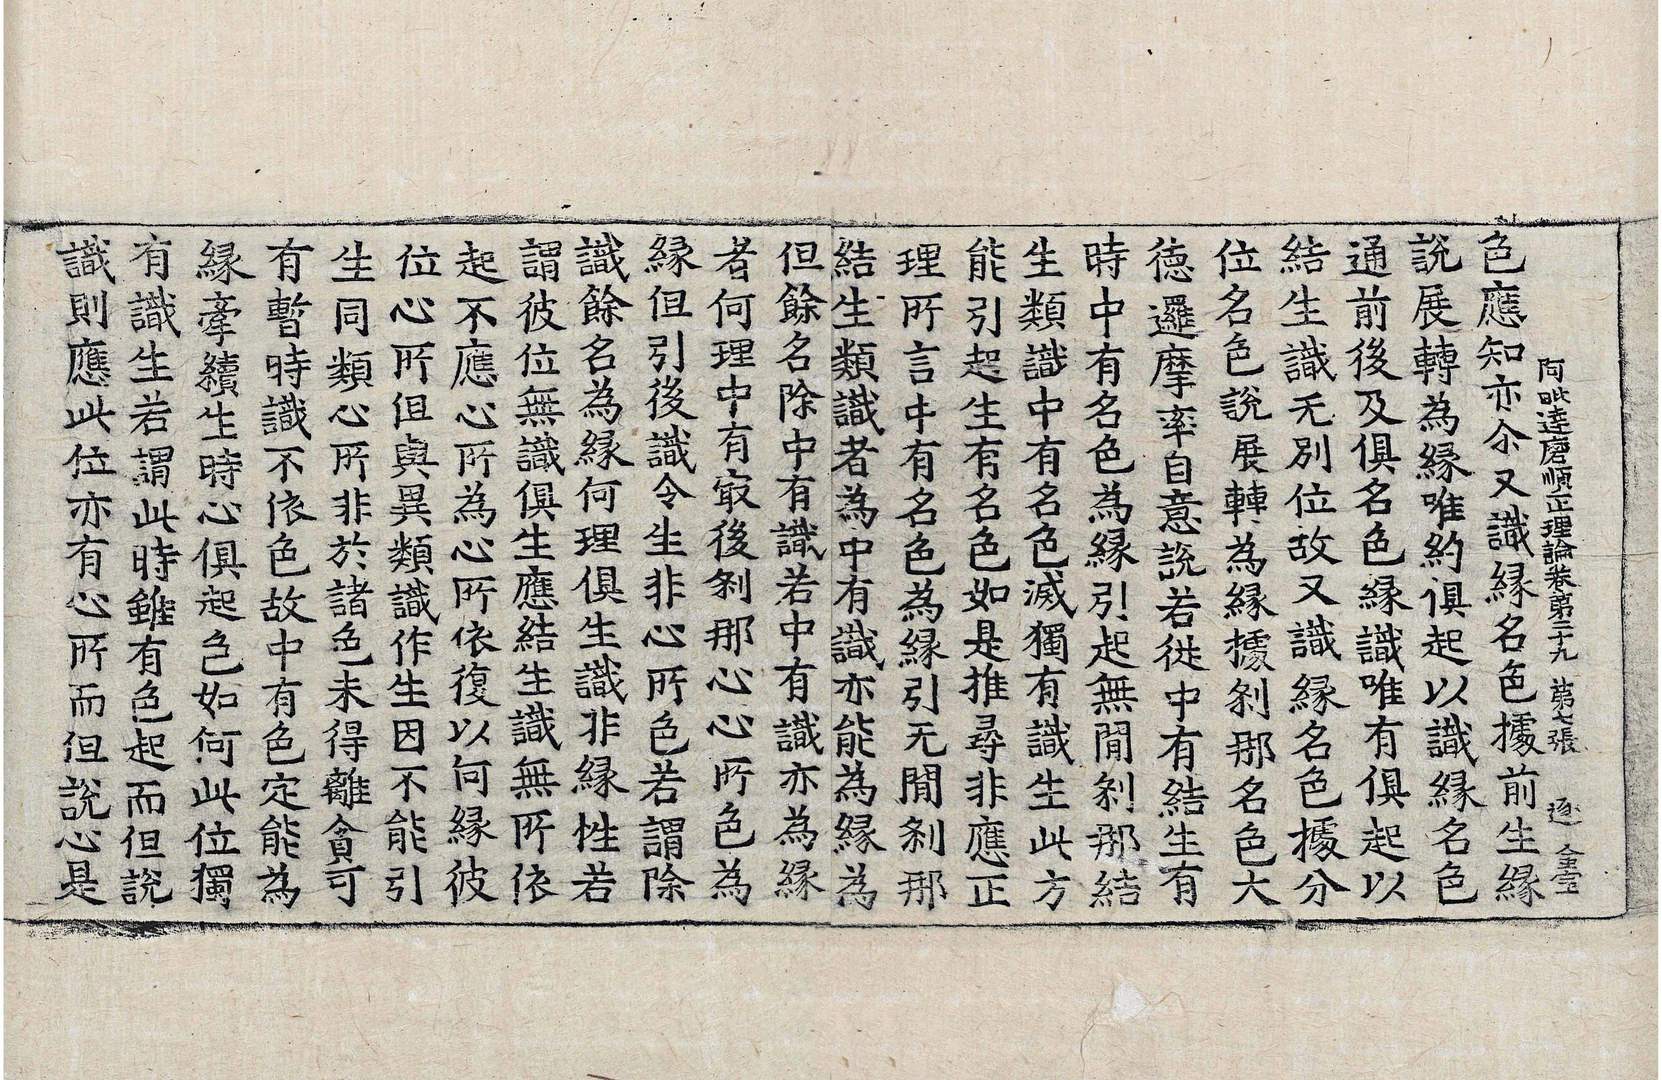 阿毗達磨順正理論卷第二十九 第七張 逐
色應知亦尒又識緣名色據前生緣
說展轉為緣唯約俱起以識緣名色
通前後及俱名色緣識唯有俱起以
結生識无別位故又識緣名色據分
位名色說展轉為緣據剎那名色大
德邏摩率自意說若從中有結生有
時中有名色為緣引起無間剎那結
生類識中有名色滅獨有識生此方
能引起生有名色如是推尋非應正
理所言中有名色為緣引无間剎那
結生類識者為中有識亦能為緣為
但餘名除中有識若中有識亦為緣
者何理中有㝡後剎那心心所色為
緣但引後識令生非心所色若謂除
識餘名為緣何理俱生識非緣性若
謂彼位無識俱生應結生識無所依
起不應心所為心所依復以何緣彼
位心所但與異類識作生因不能引
生同類心所非於諸色未得離貪可
有暫時識不依色故中有色定能為
緣牽續生時心俱起色如何此位獨
有識生若謂此時雖有色起而但說
識則應此位亦有心所而但說心是